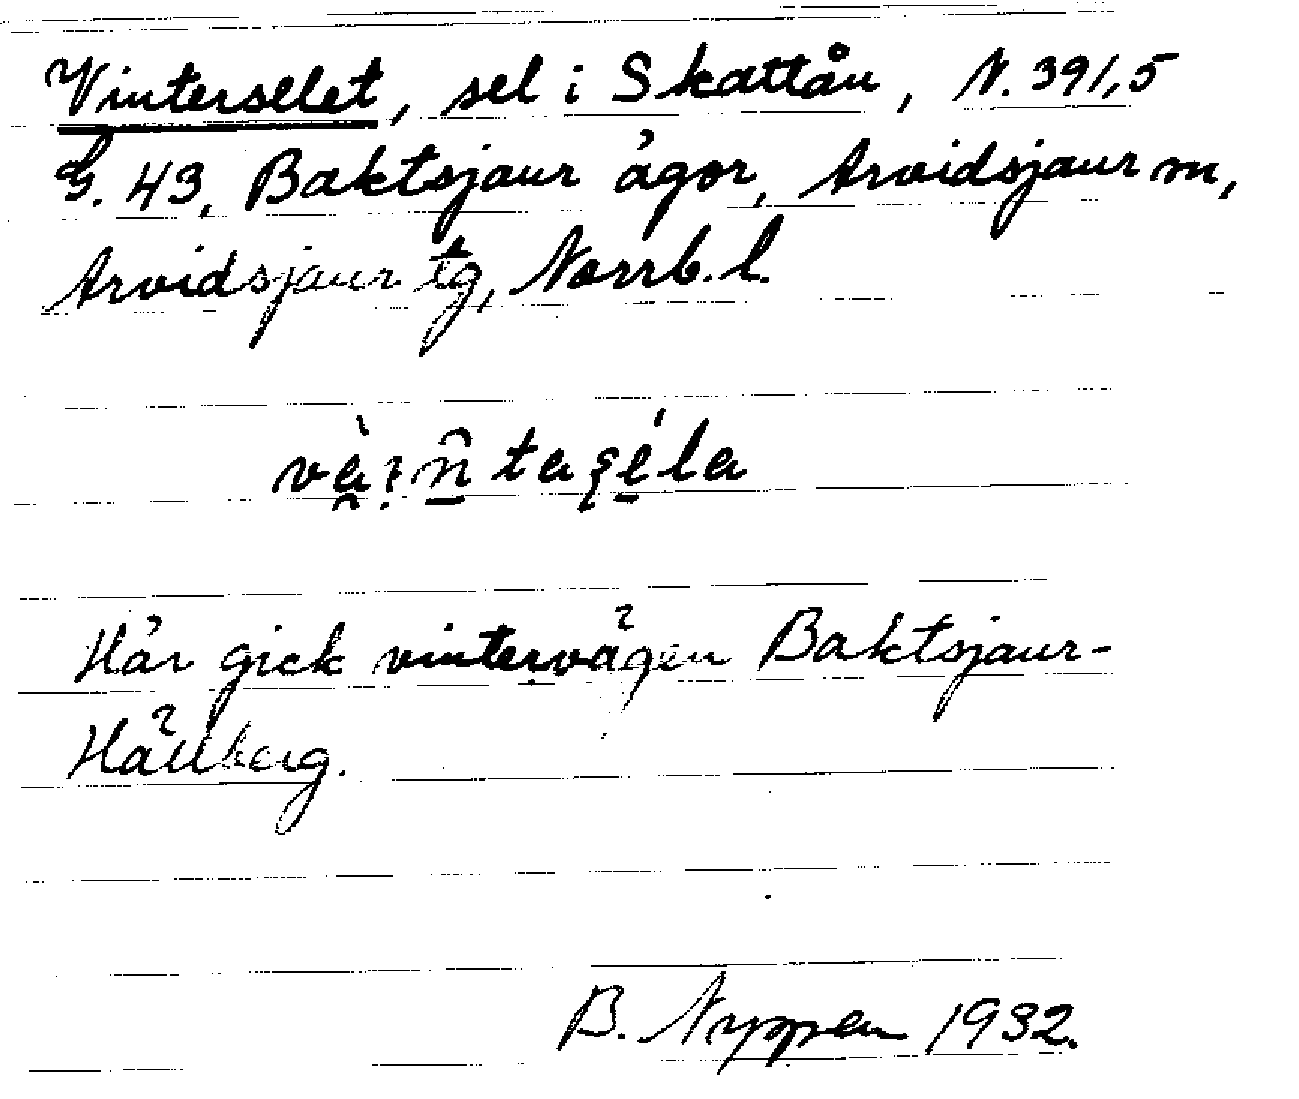 Vinterselet, sel i Skattån, N. 391,5
G. 43, Baktsjaur ägor, Arvidsjaur sn,
Arvidsjaur tg, Norrb. l.
Här gick vintervägen Baktsjaur-
Hällberg.
B. Nyppen 1932.